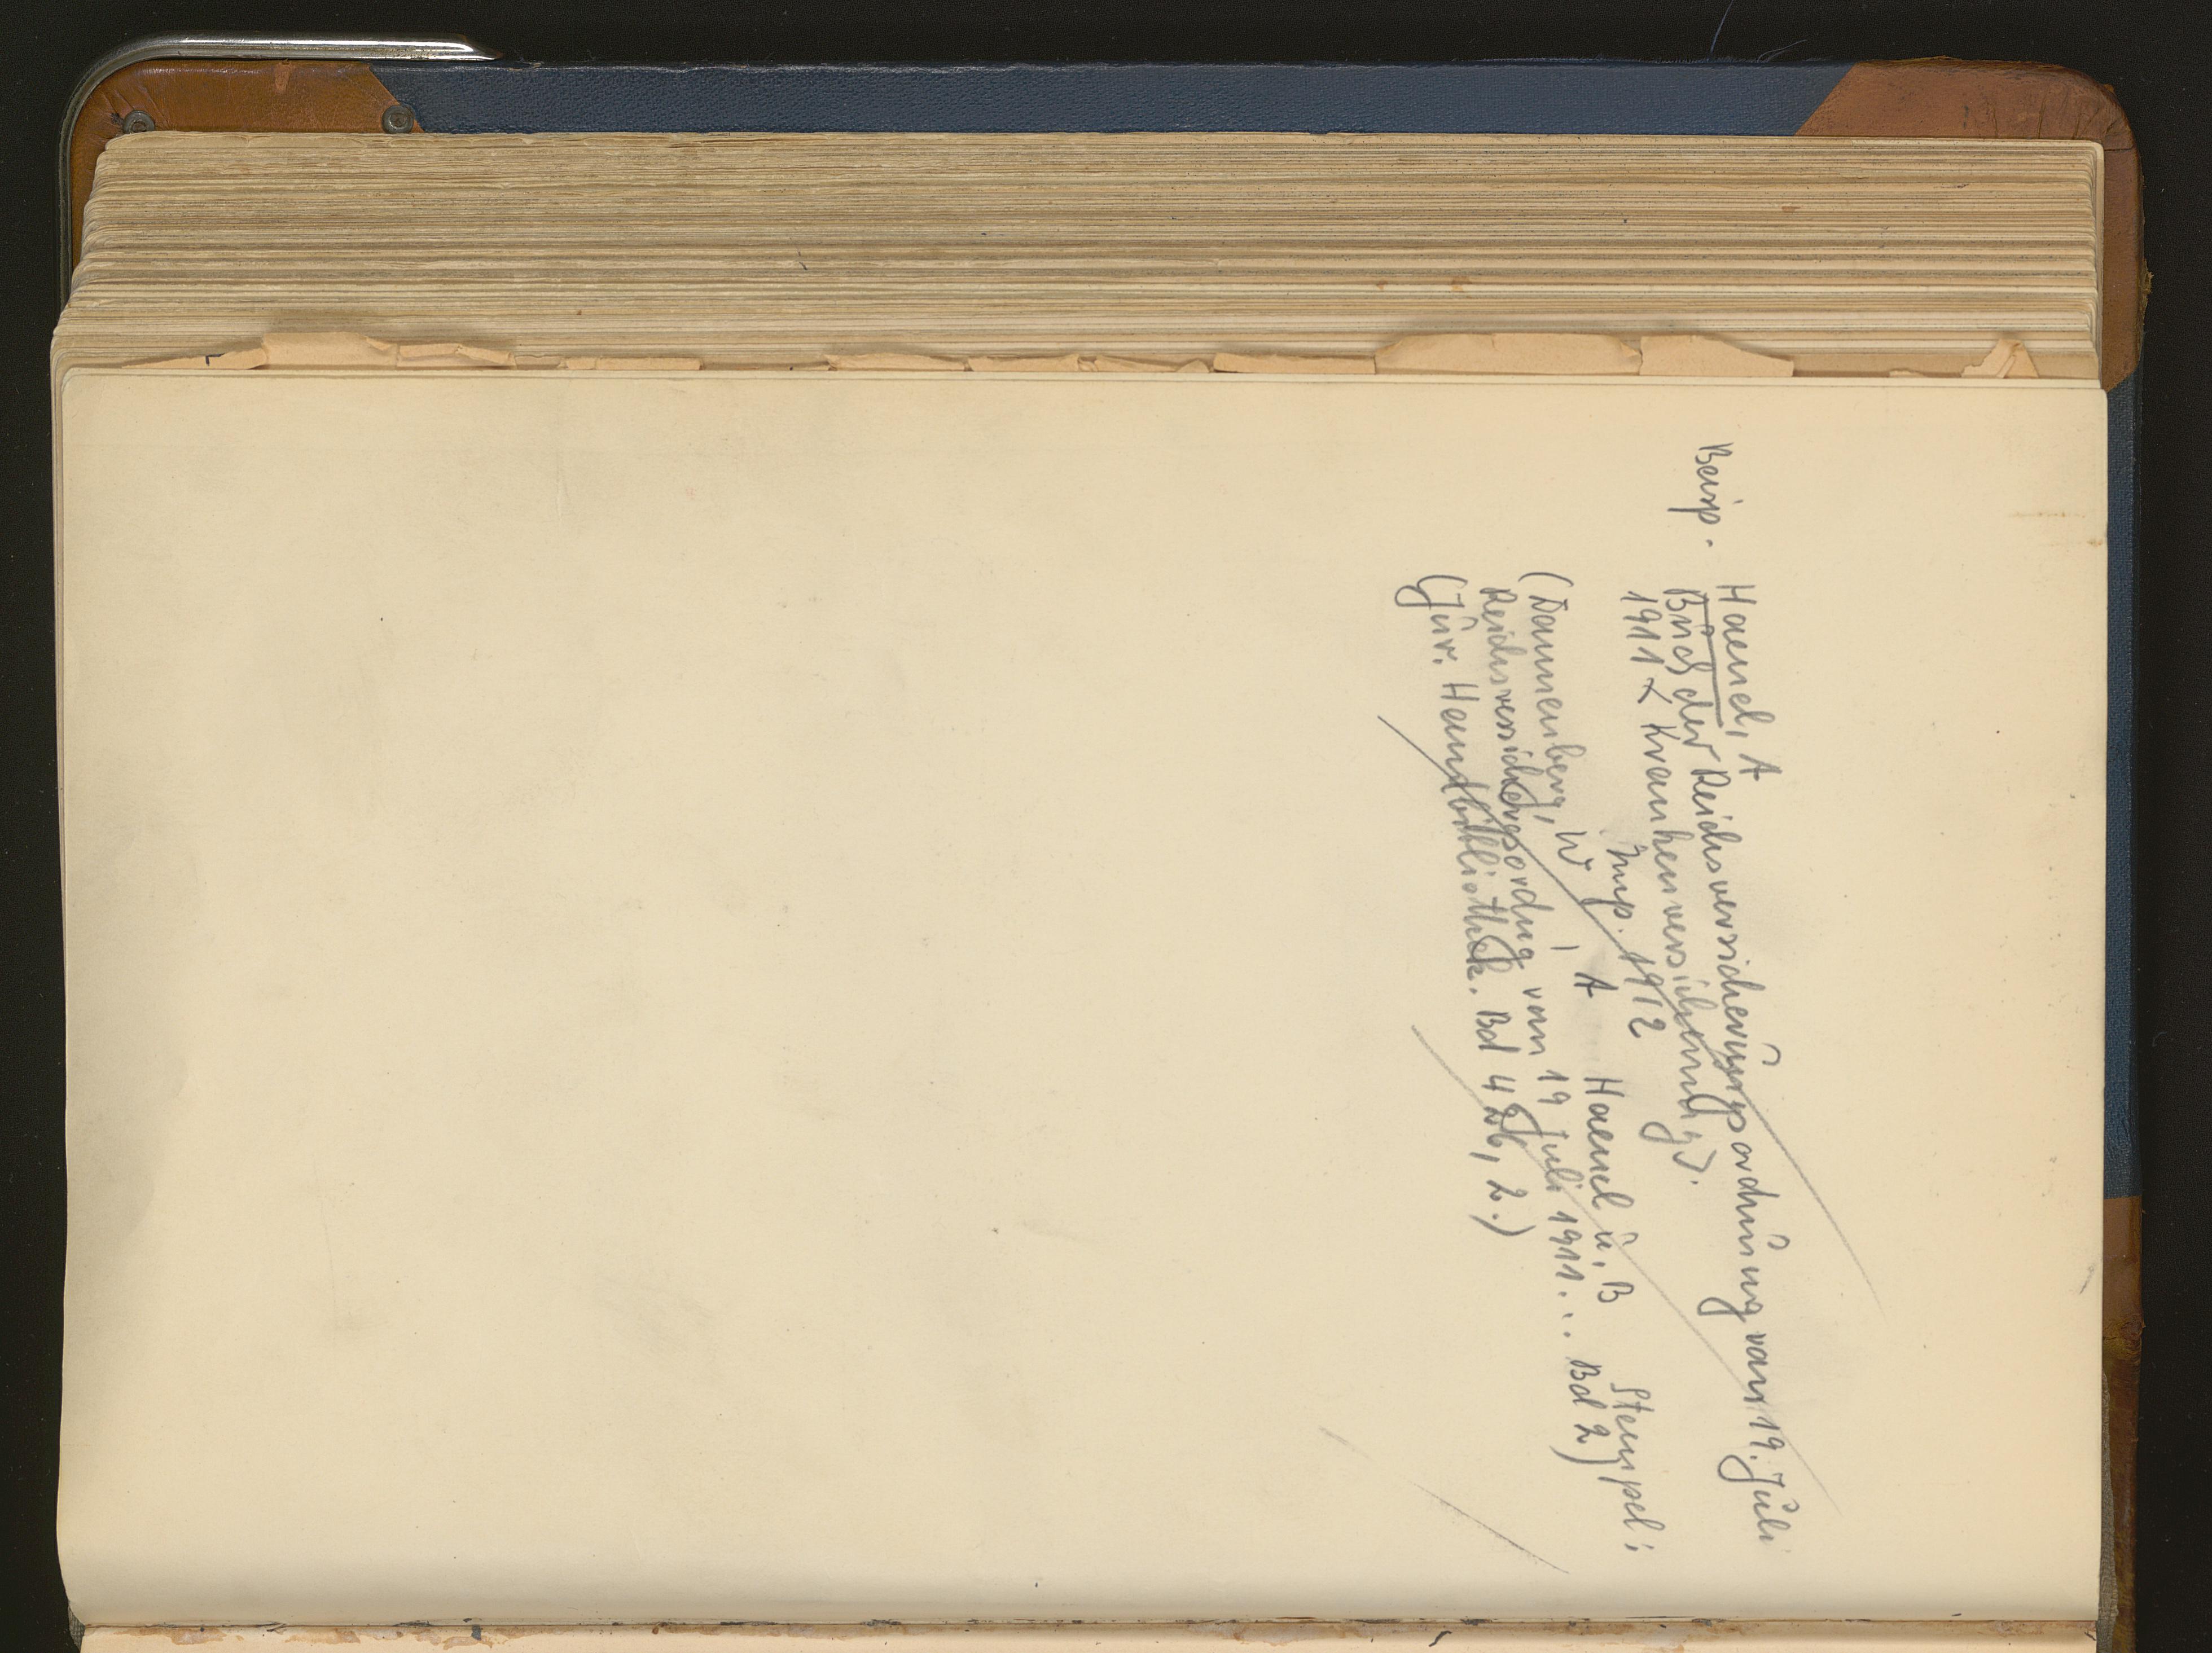 Beisp. Haenel, A
Buch der Reichsversicherungsordnung vom 19. Juli
1911 < Krankenversicherung >.
Lnp. 1912
(Dannenberg, W, A Haenel u. B Stempel:
Reichsversichergsordng vom 19 Juli 1911... Bd 2)
(Jur. Handbibliothek. Bd 426, 2.)